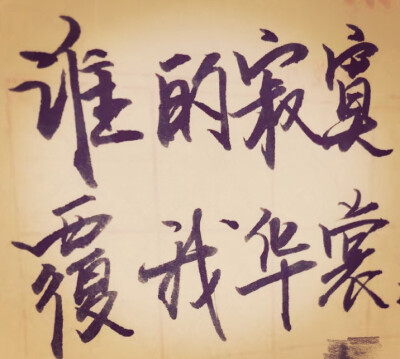 谁的寂寞
覆我华裳